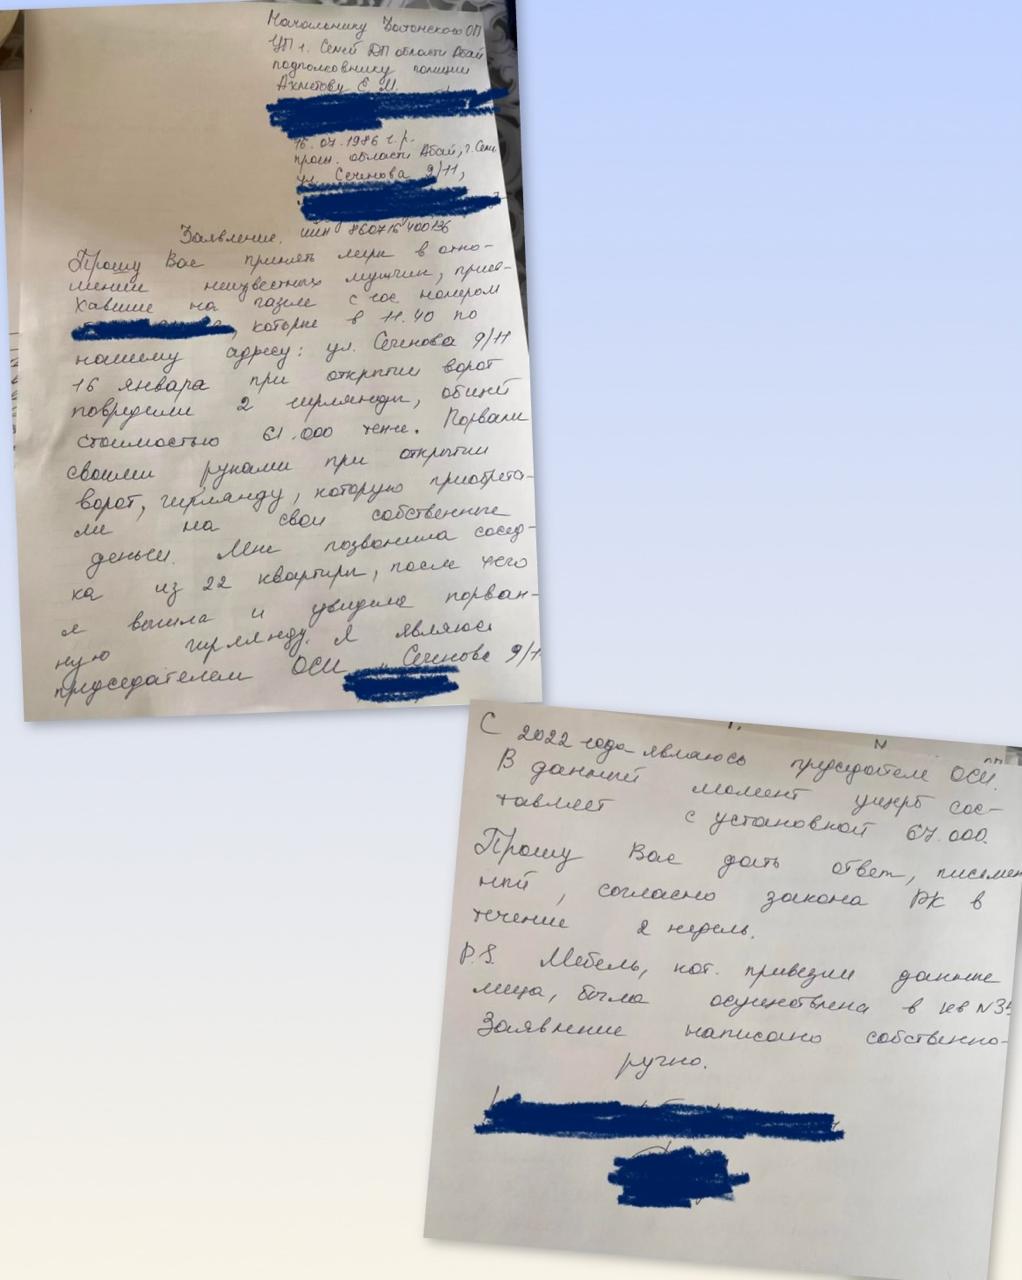 Начальнику Востонского ОП
УП г. Семей ДП области Абай
подполковнику полиции
Ахметову Е.М.
16.07.1986 г.р.
прож. области Абай, г. Сем
ул. Сеченова 9/11,
Заявление. ИИН 860716400136
Прошу Вас принять меры в отно-
шении неизвестных мужчин, прие-
хавшие на газеле с гос номером
, которые в 11.40 по
нашему адресу: ул. Сеченова 9/11
16 января при открытии ворот
повредили 2 гирлянды, общей
стоимостью 61.000 тенге. Порвали
своими руками при открытии
ворот, гирлянду, которую приобрета-
ли на свои собственные
деньги. Мне позвонила сосед-
ка из 22 квартиры, после чего
я вышла и увидела порван-
ную гирлянду. Я являюсь
председателем ОСИ Сеченова 9/11
С 2022 года являюсь председателем ОСИ.
В данный момент ущерб сос-
тавляет с установкой 67.000.
Прошу Вас дать ответ, письмен
ный, согласно закона РК в
течение 2 недель.
P.S. Мебель, кот. привезли данные
лица, была осуществлена в кв N3
Заявление написано собственно-
ручно.